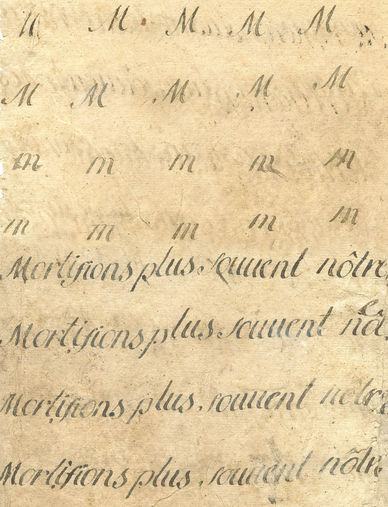 M M M M M
M M M M M
m m m m m
m m m m m
Mortifions plus souuent nôtre
Mortifions plus souuent nô
Mortifions plus souuent nôtre
Mortifions plus souuent nôtre